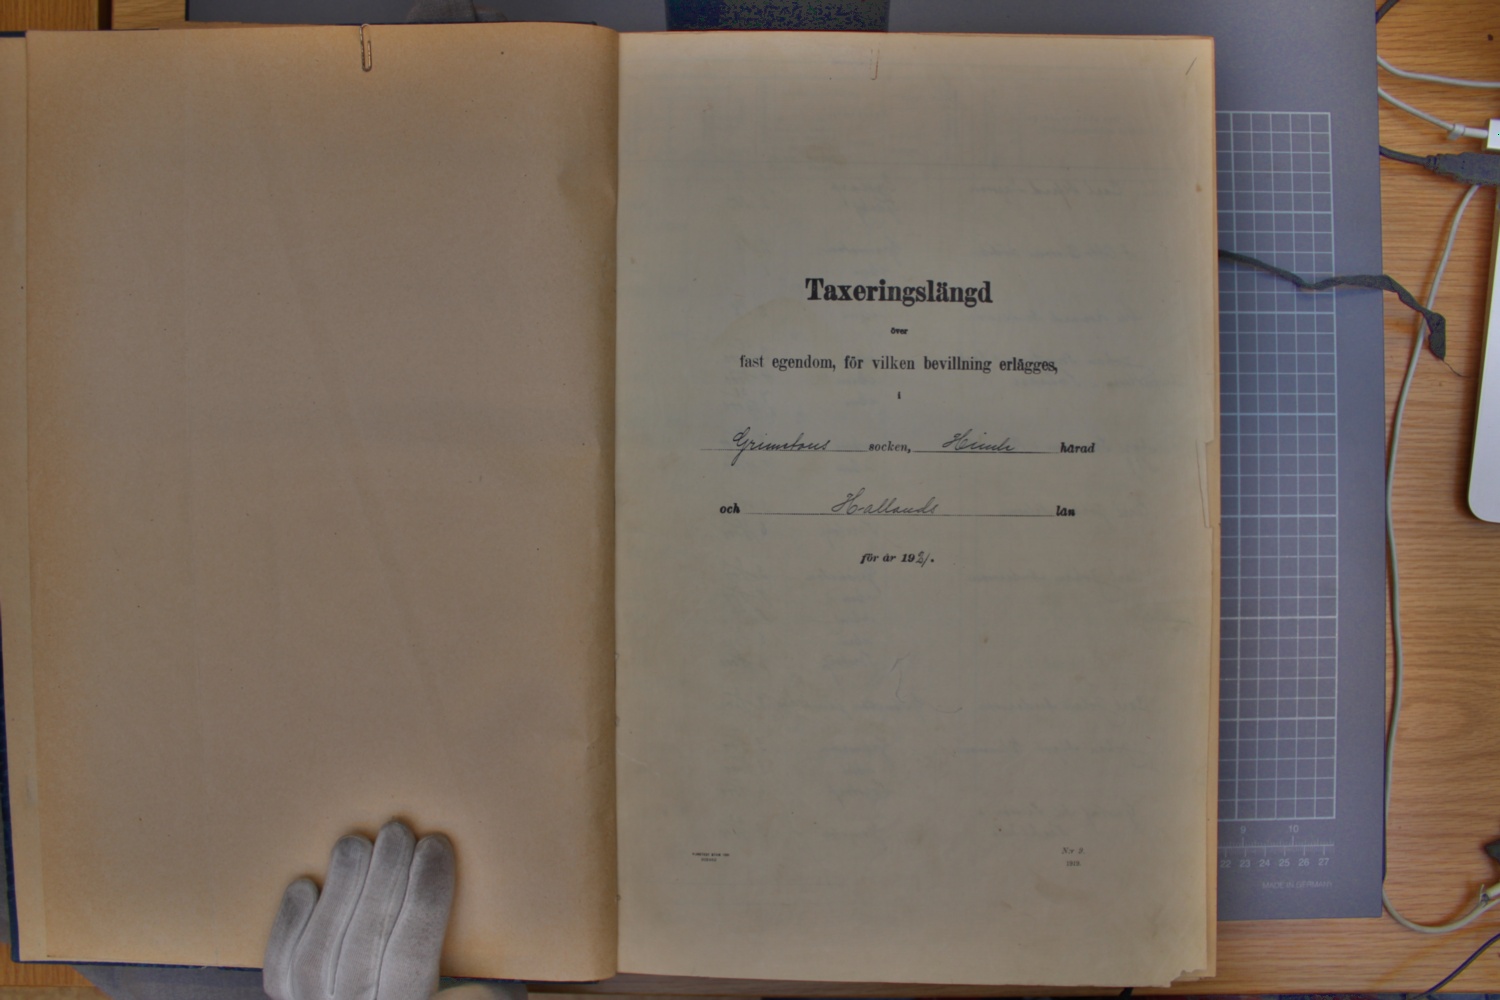 Taxeringslängd
över
fast egendom, för vilken bevillning erlägges,
i
Grimetons socken, Himle härad
och Hallands län
för år 1921.
N:r 2.
1919.
9 10
22 23 24 25 26 27
MADE IN GERMANY